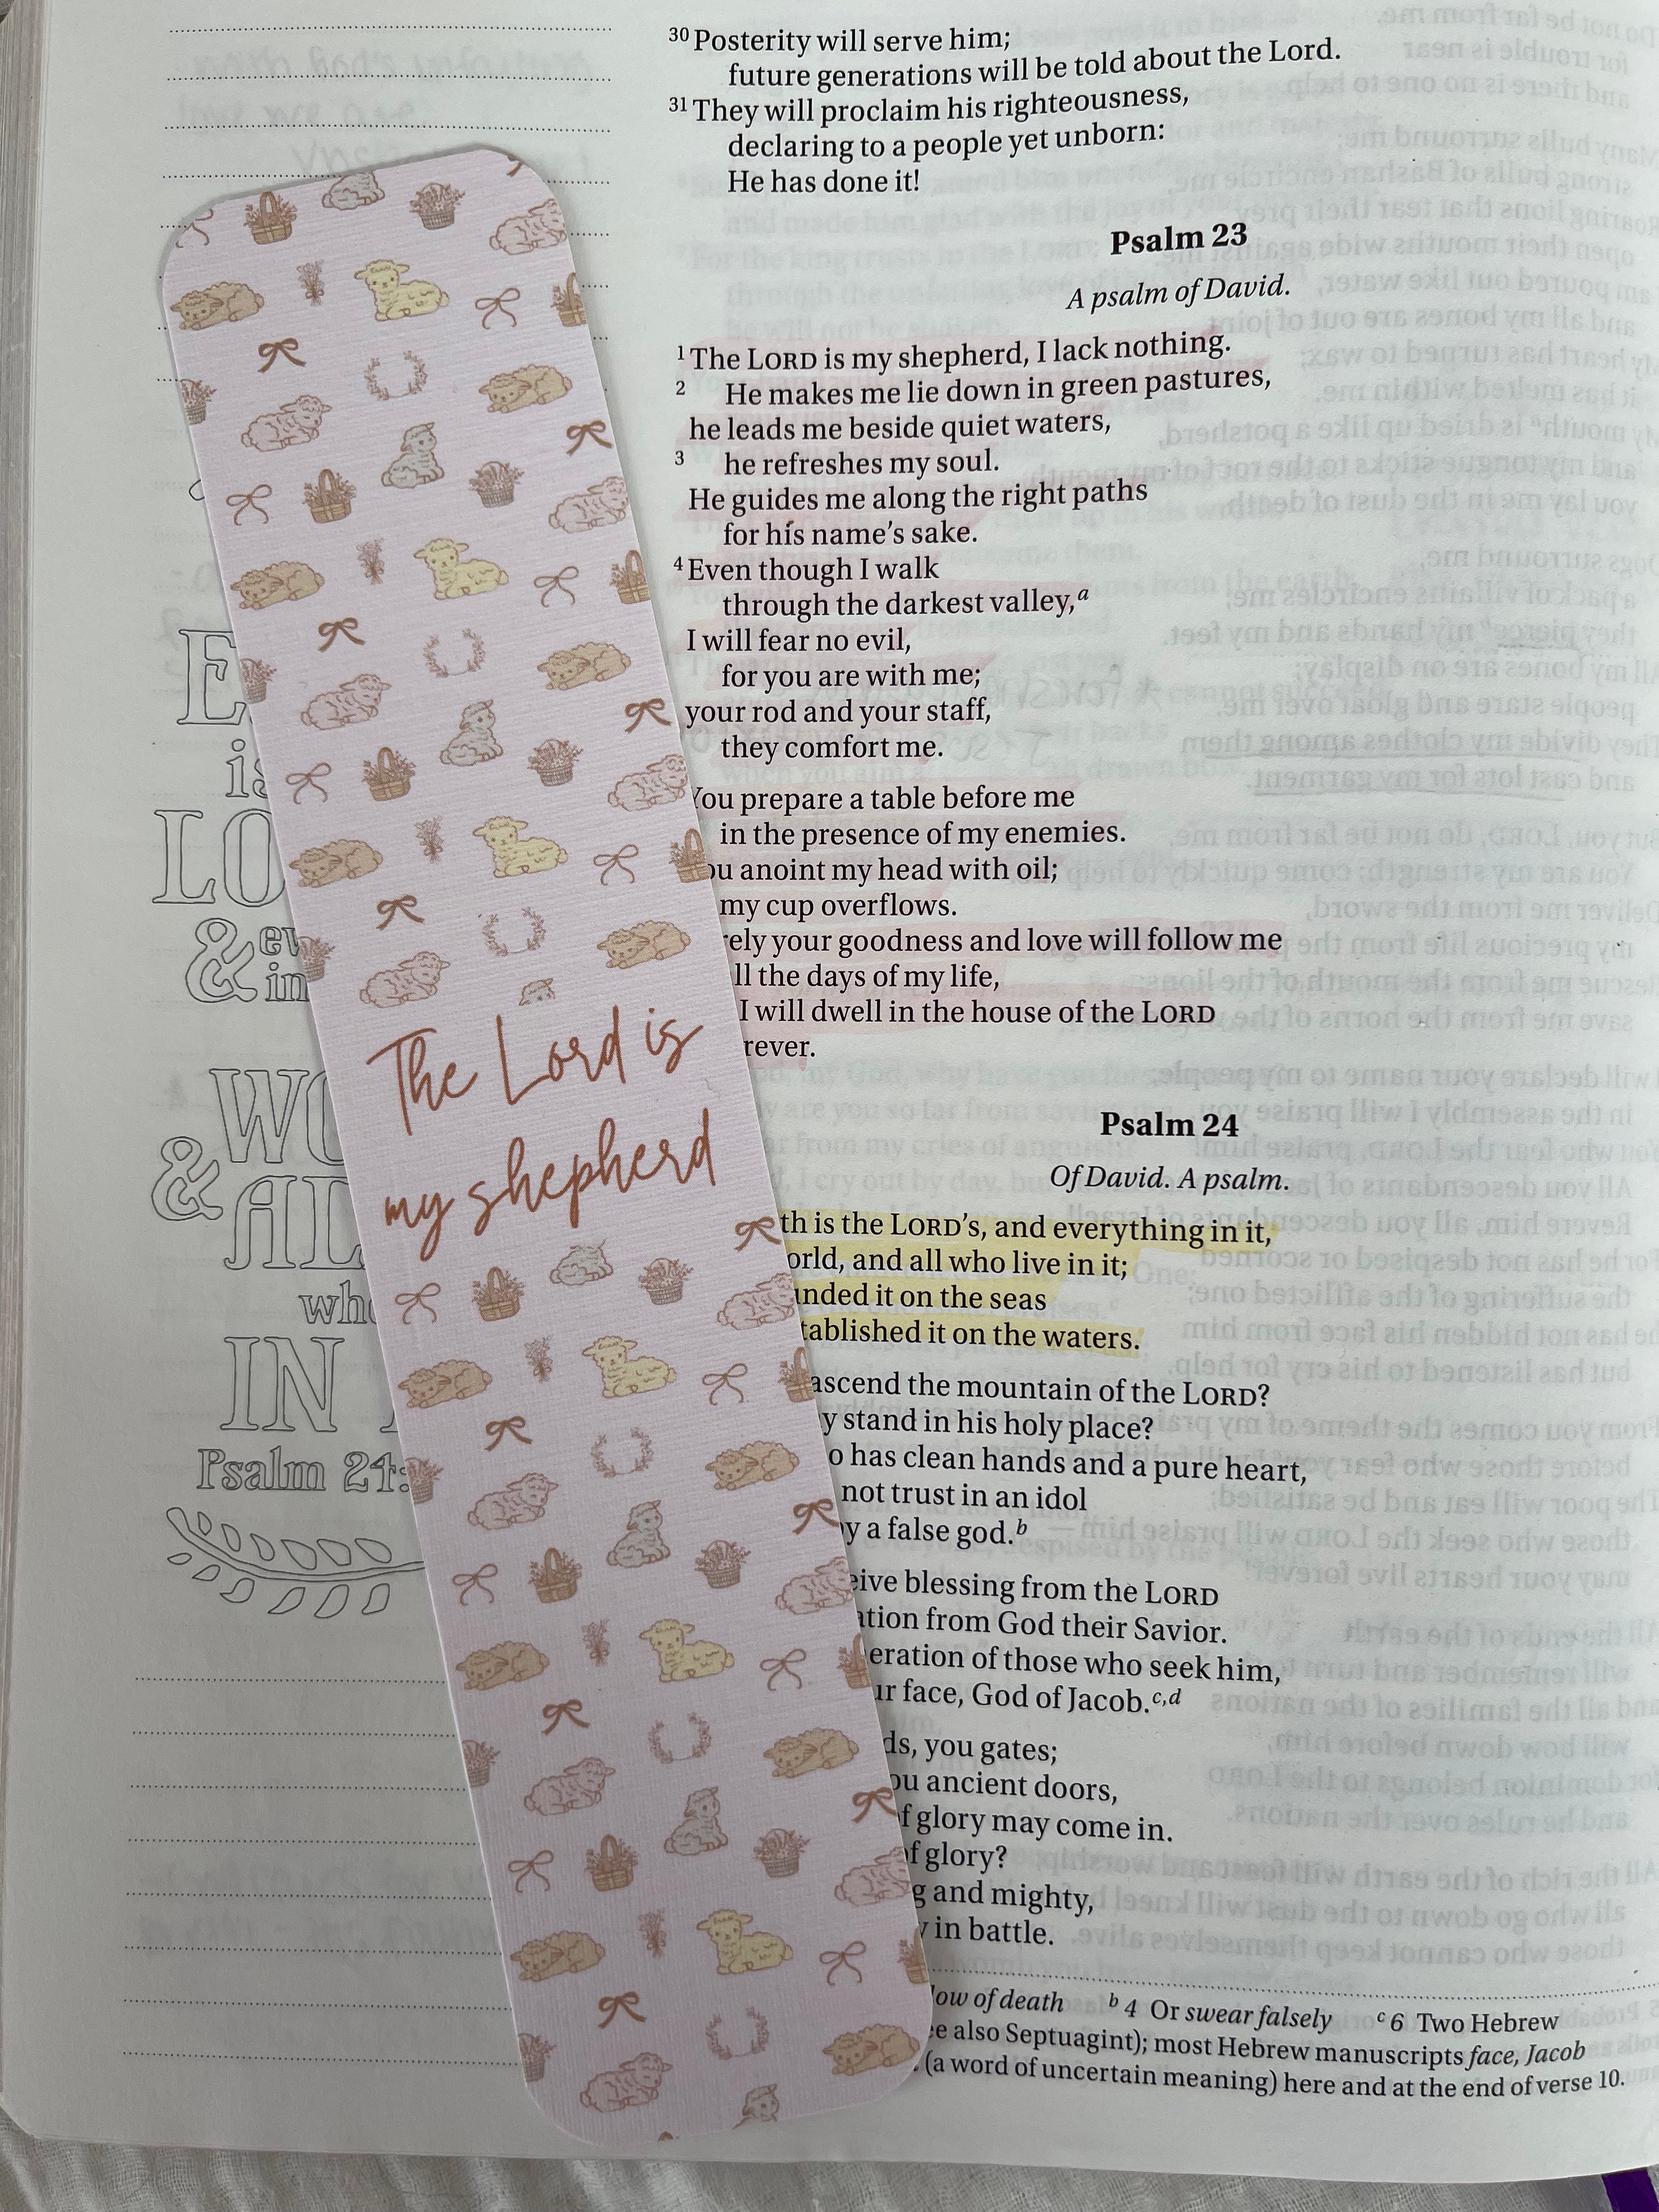 30 Posterity will serve him;
future generations will be told about the Lord.
31 They will proclaim his righteousness,
declaring to a people yet unborn:
He has done it!
Psalm 23
A psalm of David.
1 The LORD is my shepherd, I lack nothing.
2 He makes me lie down in green pastures,
he leads me beside quiet waters,
3 he refreshes my soul.
He guides me along the right paths
for his name's sake.
4 Even though I walk
through the darkest valley,a
I will fear no evil,
for you are with me;
your rod and your staff,
they comfort me.
You prepare a table before me
in the presence of my enemies.
ou anoint my head with oil;
my cup overflows.
rely your goodness and love will follow me
ll the days of my life,
I will dwell in the house of the LORD
rever.
Psalm 24
Of David. A psalm.
th is the LORD's, and everything in it,
orld, and all who live in it;
unded it on the seas
tablished it on the waters.
ascend the mountain of the LORD?
y stand in his holy place?
o has clean hands and a pure heart,
not trust in an idol
y a false god.b
eive blessing from the LORD
ation from God their Savior.
eration of those who seek him,
ur face, God of Jacob.c,d
ds, you gates;
ou ancient doors,
of glory may come in.
of glory?
g and mighty,
y in battle.
low of death b 4 Or swear falsely c 6 Two Hebrew
ee also Septuagint); most Hebrew manuscripts face, Jacob
(a word of uncertain meaning) here and at the end of verse 10.
The Lord is
my shepherd
E
is
LO
& ev
in
WO
& AL
who
IN
Psalm 24: